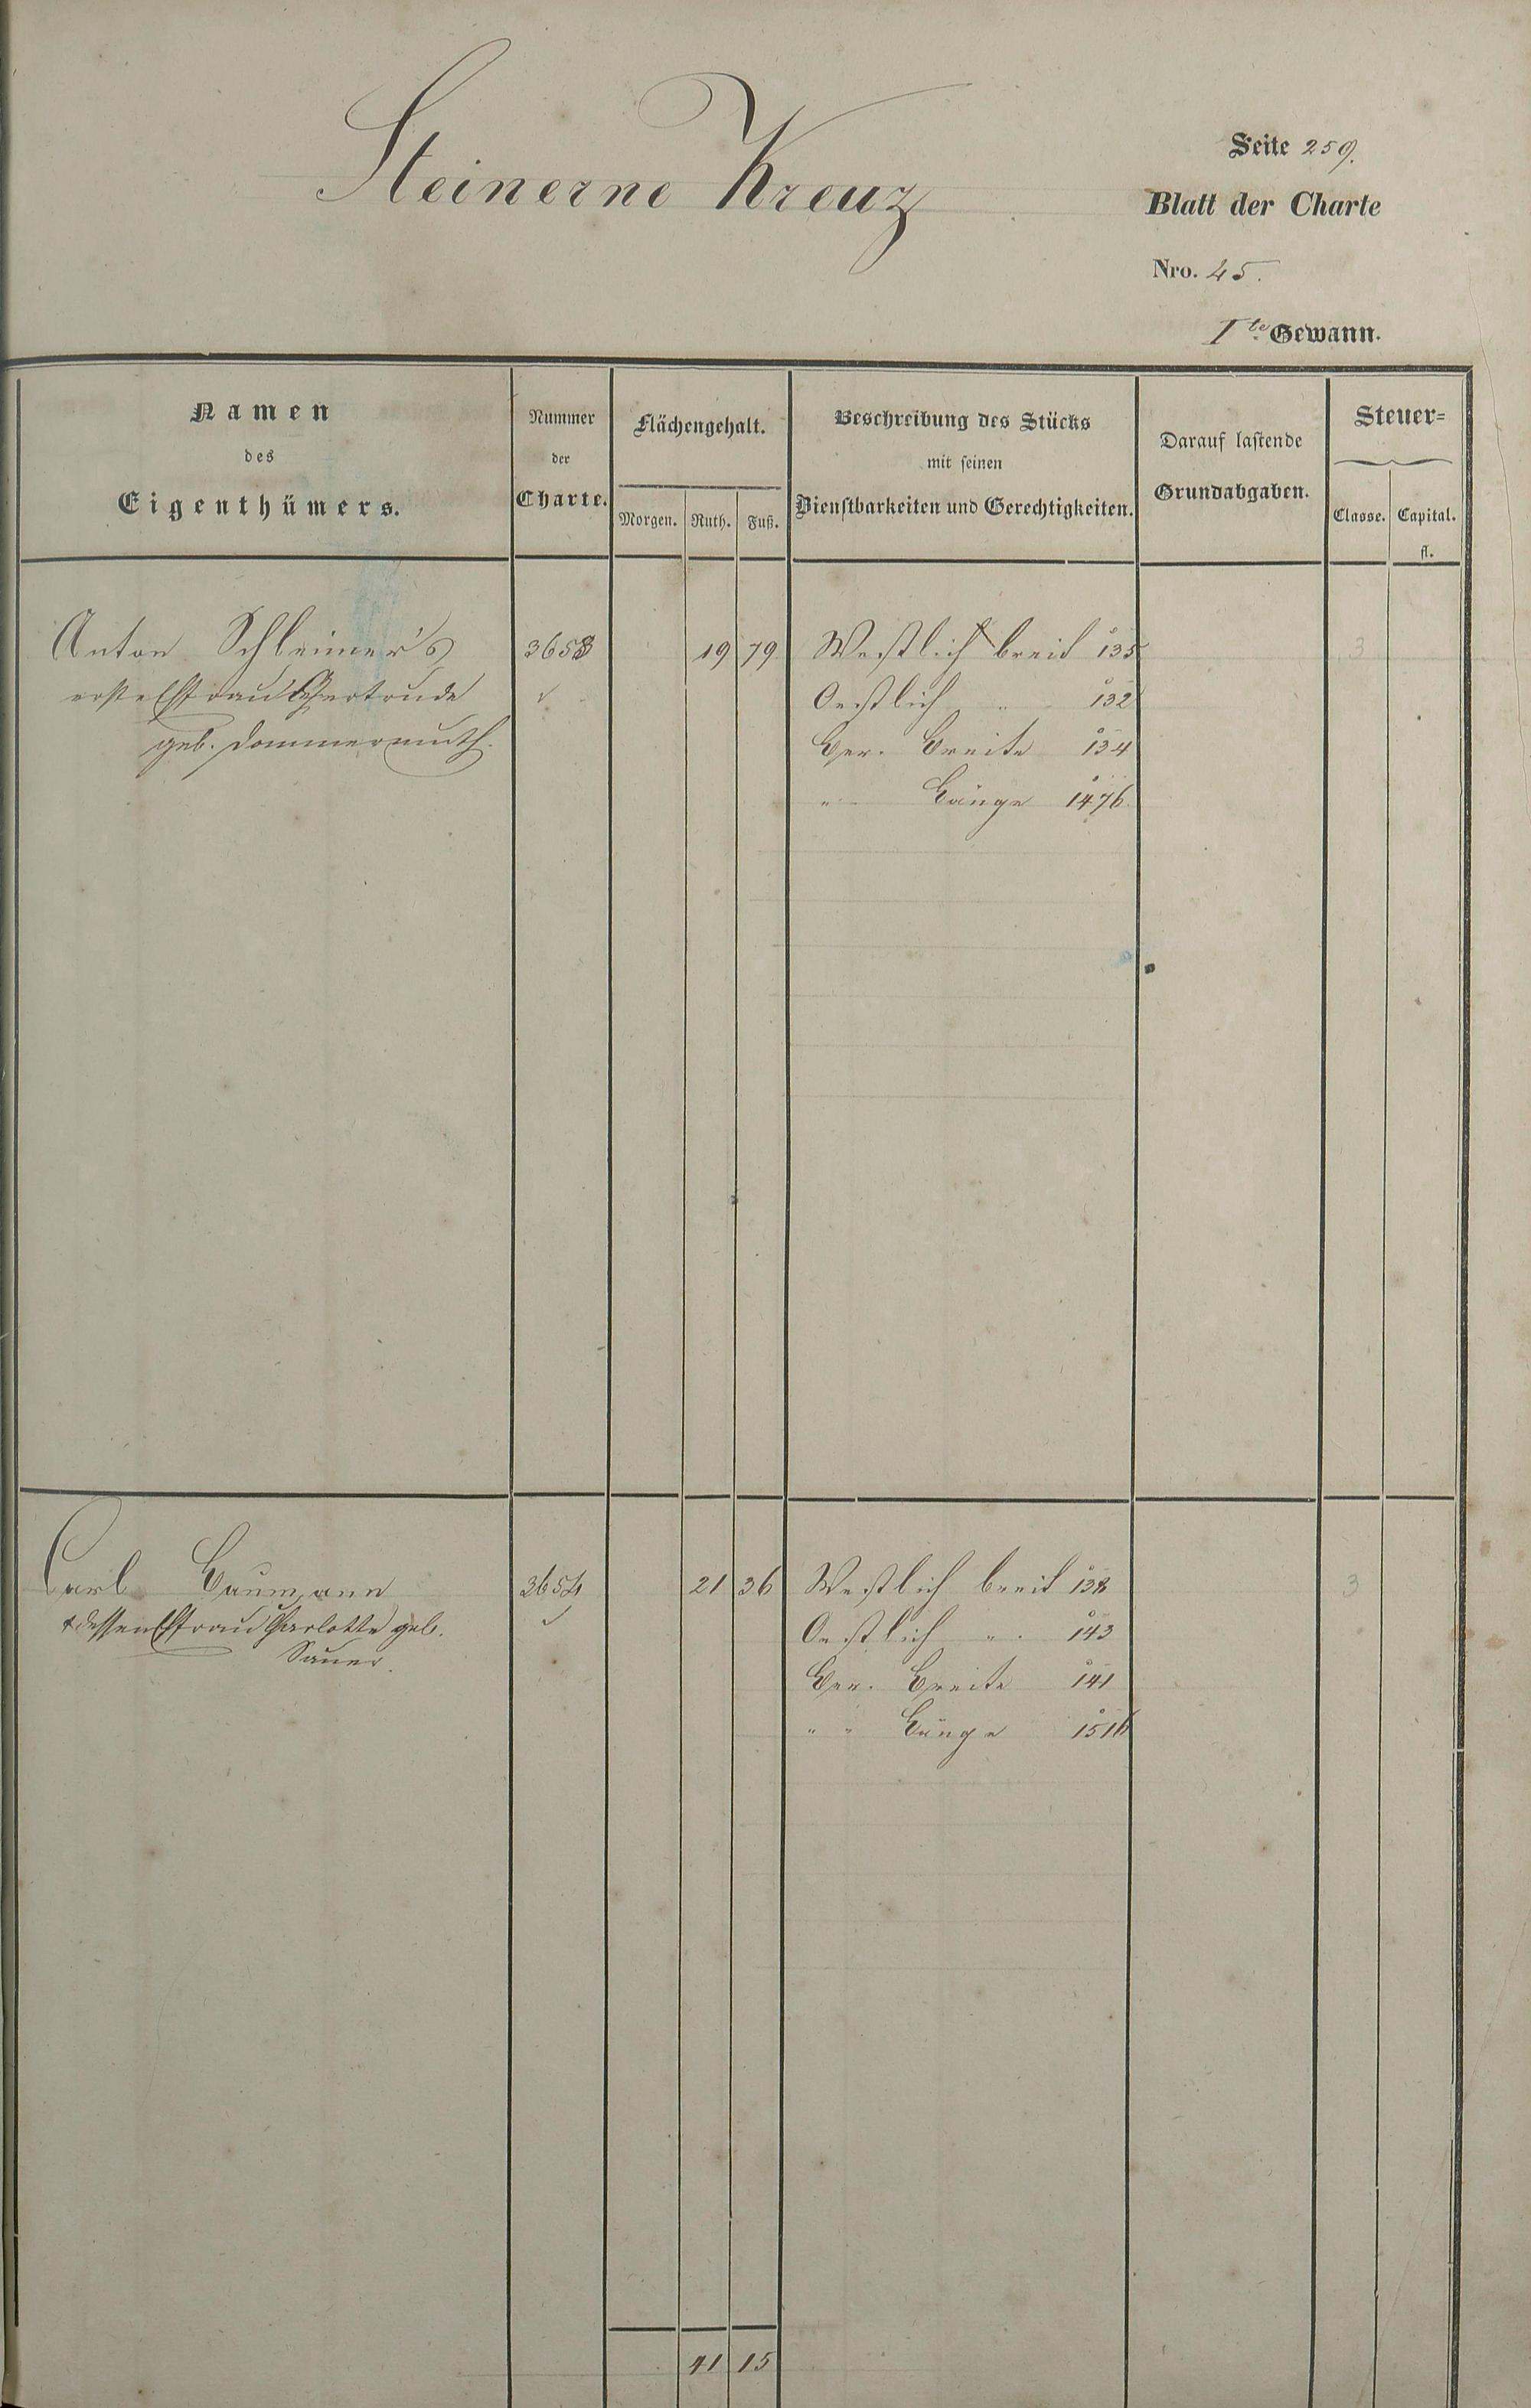 Steinerne Kreuz
Seite 259.
Blatt der Charte
Nro. 45.
I.te Gewann.
Namen
des
Eigenthümers.
Nummer
der
Charte.
Flächengehalt.
Morgen. Ruth. Fuß.
Beschreibung des Stücks
mit seinen
Dienstbarkeiten und Gerechtigkeiten.
Darauf lastende
Grundabgaben.
Steuer=
Classe. Capital.
fl.
Anton Schleimer's 3653 19 79 Westlich breit 135 3
erste Ehefrau Gertrude Oestlich " 132
geb. Dommermuth. Ber. Breite 134
" Länge 1476
Carl Baumann 3654 21 36 Westlich breit 138 3
& dessen Ehefrau Charlotte geb. Oestlich " 143
Sauer. Ber. Breite 141
" " Länge 1516
41 15